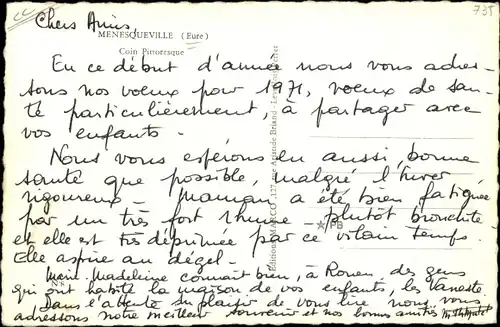 735
Chers Amis,
MENESQUEVILLE (Eure)
Coin Pittoresque
En ce début d'année nous vous adres-
sons nos voeux pour 1971, voeux de san-
té particulièrement, à partager avec
vos enfants -
Nous vous espérons en aussi bonne
santé que possible, malgré l'hiver
rigoureux - Maman a été bien fatiguée
par un très fort rhume - plutôt bronchite
et elle est très déprimée par ce vilain temps.
Elle aspire au dégel -
Marie-Madeleine connait bien, à Rouen, des gens
qui ont habité la maison de vos enfants, les Vaneste.
Dans l'attente du plaisir de vous lire nous vous
adressons notre meilleur souvenir et nos bonnes amitiés
127, rue Aristide Briand